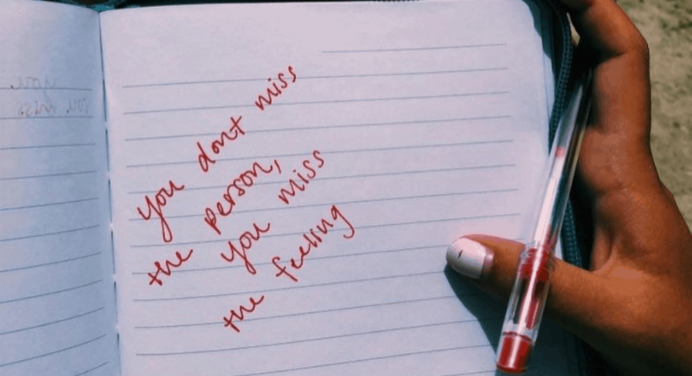 You dont miss
the person,
you miss
the feeling